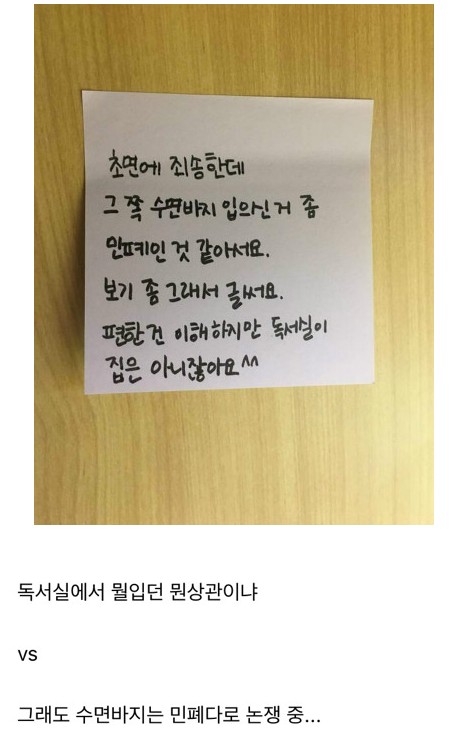 초면에 죄송한데
그 쪽 수면바지 입으신 거 좀
민폐인 것 같아서요.
보기 좀 그래서 글써요.
편한건 이해하지만 독서실이
집은 아니잖아요^^
독서실에서 뭘입던 뭔상관이냐
vs
그래도 수면바지는 민폐다로 논쟁 중...